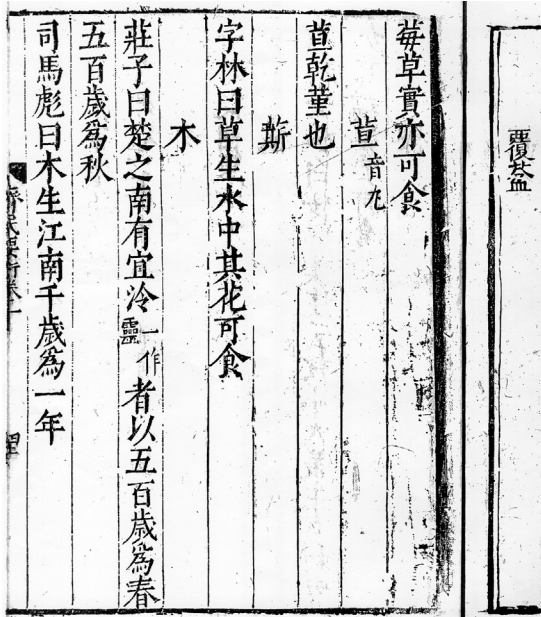 覆葐
莓草實亦可食
荁音丸
荁乾菫也
䔮
字林曰草生水中其花可食
木
莊子曰楚之南有宜泠一作靈者以五百歲爲春
五百歲爲秋
司馬彪曰木生江南千歲爲一年